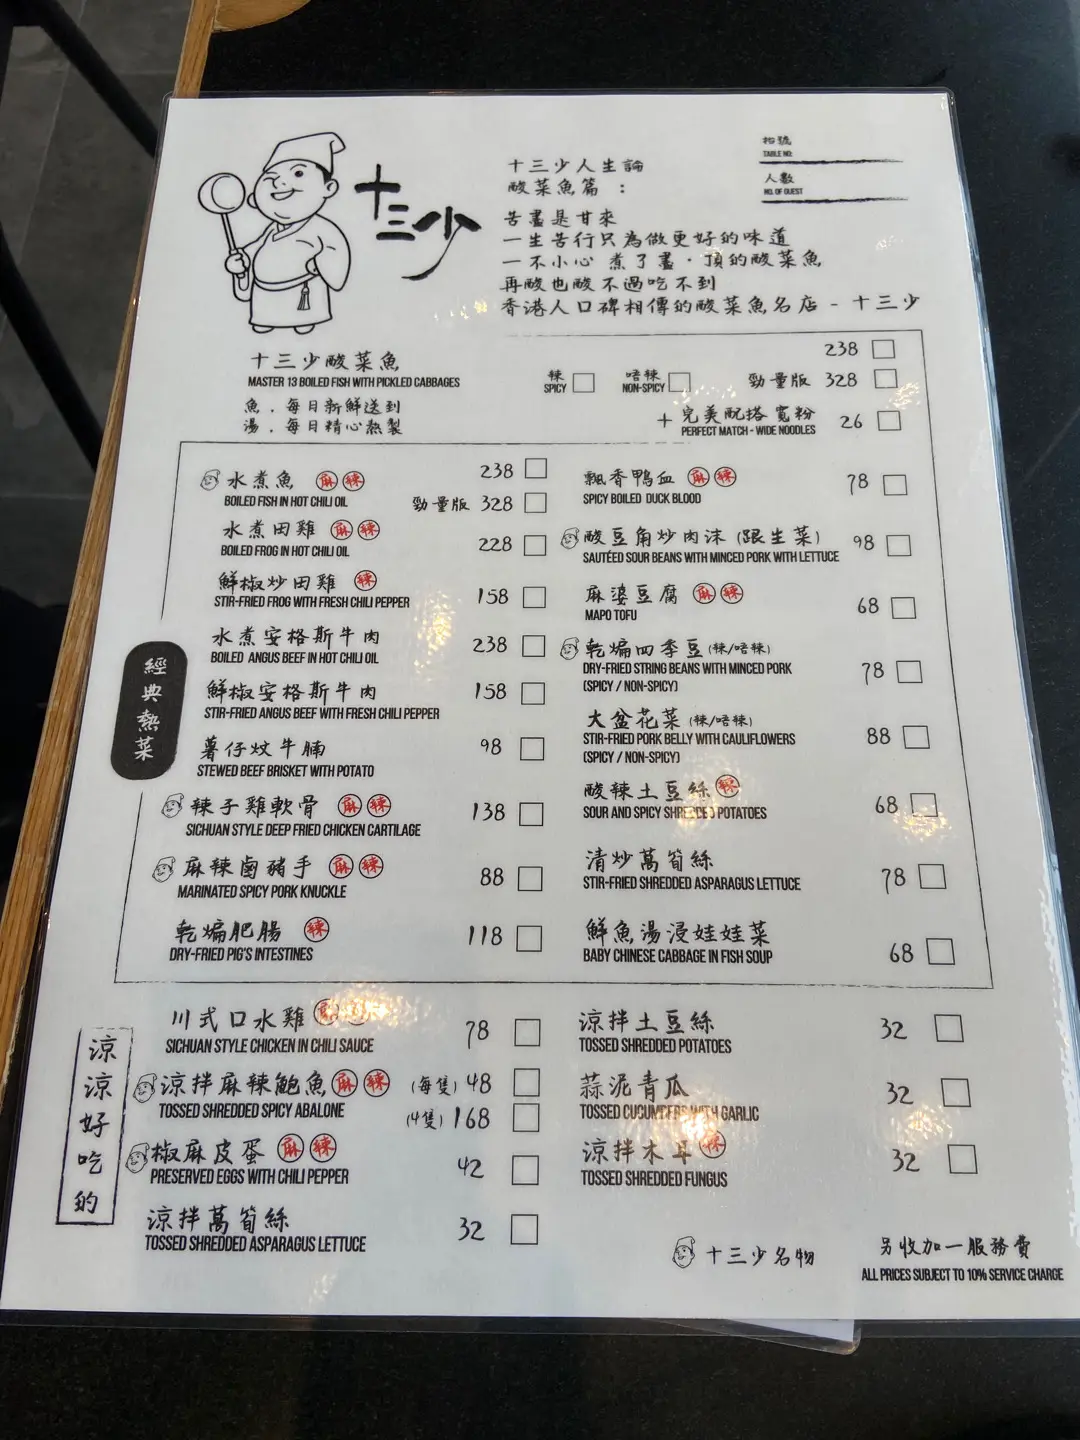 十三少
十三少人生論
酸菜魚篇：
苦盡是甘來
一生苦行只為做更好的味道
一不小心 煮了盡·頂的酸菜魚
再酸也酸不過吃不到
香港人口碑相傳的酸菜魚名店 - 十三少
枱號
TABLE NO:
人數
NO. OF GUEST
十三少酸菜魚
MASTER 13 BOILED FISH WITH PICKLED CABBAGES
魚．每日新鮮送到
湯．每日精心熬製
辣
SPICY
唔辣
NON-SPICY
238
勁量版 328
+ 完美配搭 寬粉 26
PERFECT MATCH - WIDE NOODLES
經典熱菜
水煮魚 麻 辣 238
BOILED FISH IN HOT CHILI OIL
勁量版 328
水煮田雞 麻 辣 228
BOILED FROG IN HOT CHILI OIL
鮮椒炒田雞 辣 158
STIR-FRIED FROG WITH FRESH CHILI PEPPER
水煮安格斯牛肉 238
BOILED ANGUS BEEF IN HOT CHILI OIL
鮮椒安格斯牛肉 158
STIR-FRIED ANGUS BEEF WITH FRESH CHILI PEPPER
薯仔炆牛腩 98
STEWED BEEF BRISKET WITH POTATO
辣子雞軟骨 麻 辣 138
SICHUAN STYLE DEEP FRIED CHICKEN CARTILAGE
麻辣鹵豬手 麻 辣 88
MARINATED SPICY PORK KNUCKLE
乾煸肥腸 辣 118
DRY-FRIED PIG'S INTESTINES
飄香鴨血 麻 辣 78
SPICY BOILED DUCK BLOOD
酸豆角炒肉沫 (跟生菜) 98
SAUTÉED SOUR BEANS WITH MINCED PORK WITH LETTUCE
麻婆豆腐 麻 辣 68
MAPO TOFU
乾煸四季豆 (辣/唔辣) 78
DRY-FRIED STRING BEANS WITH MINCED PORK
(SPICY / NON-SPICY)
大盆花菜 (辣/唔辣) 88
STIR-FRIED PORK BELLY WITH CAULIFLOWERS
(SPICY / NON-SPICY)
酸辣土豆絲 辣 68
SOUR AND SPICY SHREDDED POTATOES
清炒萵筍絲 78
STIR-FRIED SHREDDED ASPARAGUS LETTUCE
鮮魚湯浸娃娃菜 68
BABY CHINESE CABBAGE IN FISH SOUP
涼涼好吃的
川式口水雞 78
SICHUAN STYLE CHICKEN IN CHILI SAUCE
涼拌麻辣鮑魚 麻 辣 (每隻) 48
TOSSED SHREDDED SPICY ABALONE
(4隻) 168
椒麻皮蛋 麻 辣 42
PRESERVED EGGS WITH CHILI PEPPER
涼拌萵筍絲 32
TOSSED SHREDDED ASPARAGUS LETTUCE
涼拌土豆絲 32
TOSSED SHREDDED POTATOES
蒜泥青瓜 32
TOSSED CUCUMBERS WITH GARLIC
涼拌木耳 辣 32
TOSSED SHREDDED FUNGUS
十三少名物
另收加一服務費
ALL PRICES SUBJECT TO 10% SERVICE CHARGE